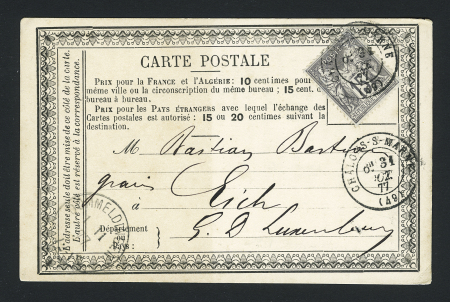 CARTE POSTALE
PRIX pour la FRANCE et l'ALGÉRIE: 10 centimes pour la
même ville ou la circonscription du même bureau; 15 cent. de
bureau à bureau.
PRIX pour les PAYS ÉTRANGERS avec lequel l'échange des
Cartes postales est autorisé : 15 ou 20 centimes suivant la
destination.
L'adresse seule doit être mise de ce côté de la carte.
L'autre côté est réservé à la correspondance.
M Bastian
grains
à Eich
Département
ou
Pays :
G. D Luxembourg
CHALONS-S-MARNE
31
77